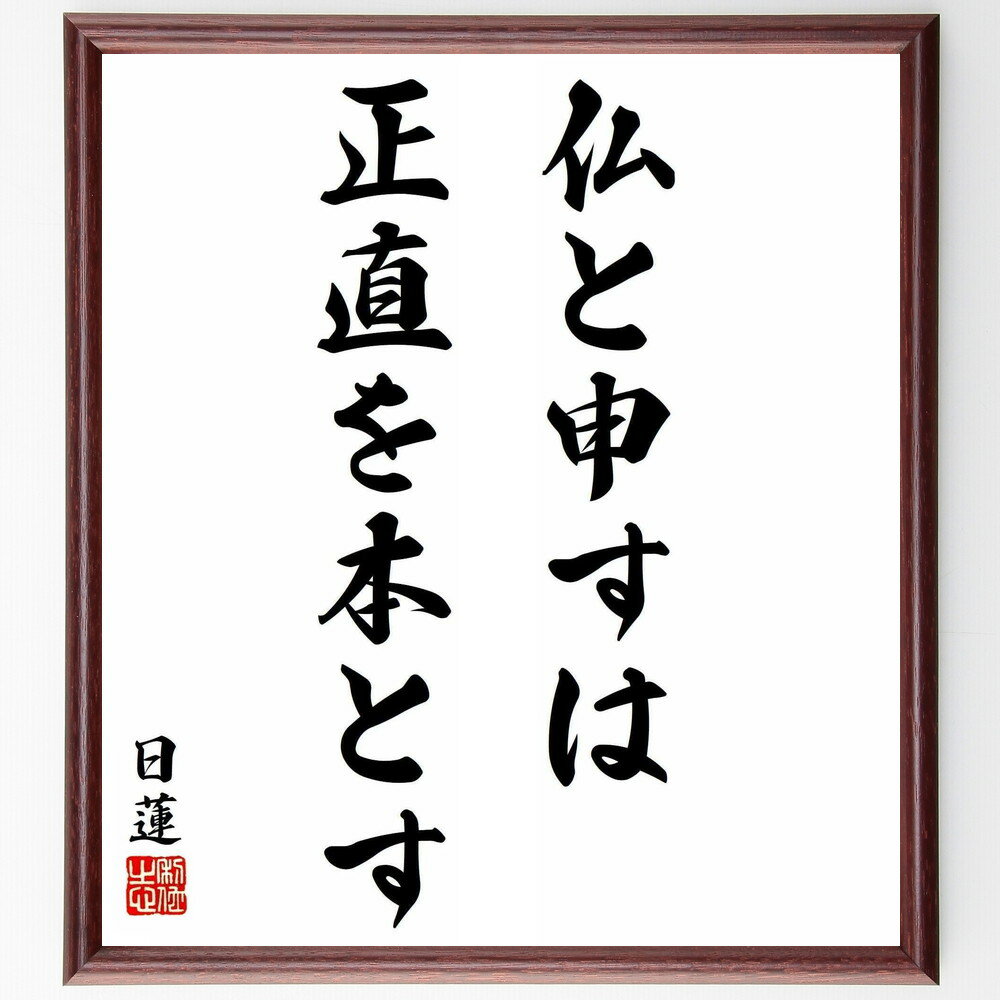 仏と申すは
正直を本とす
日蓮